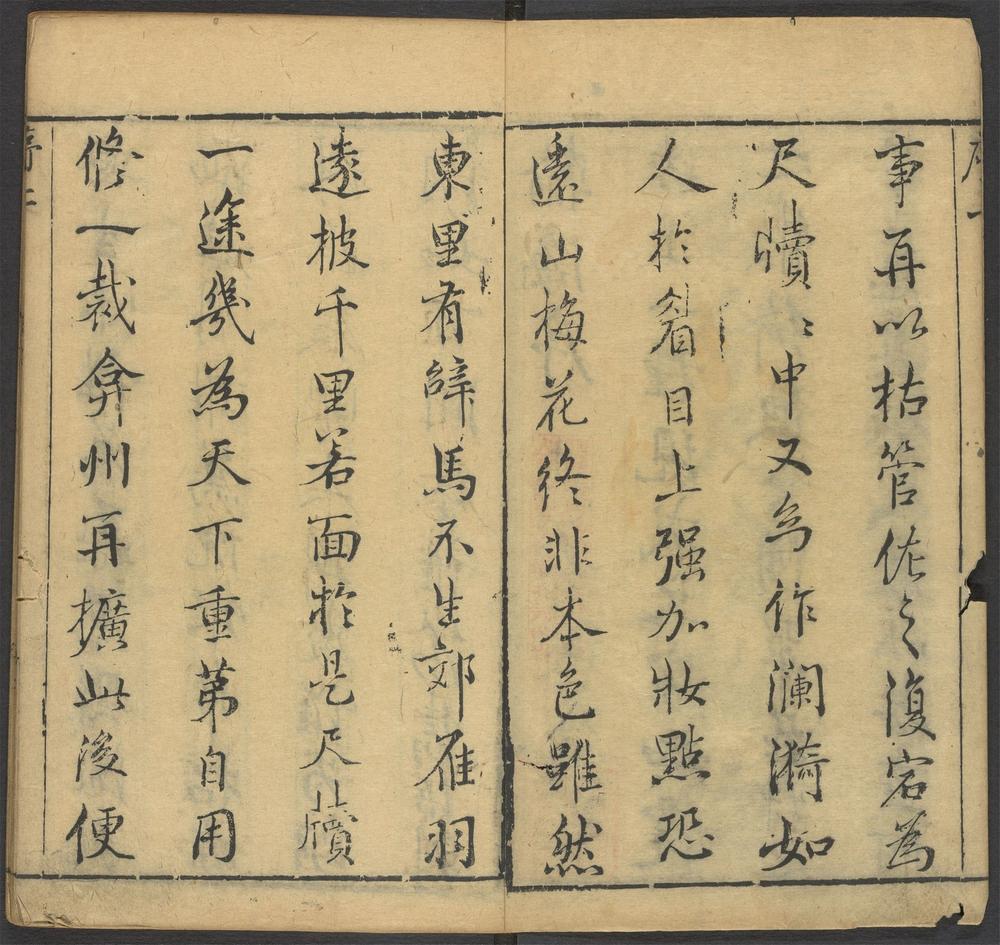 事再以枯管佐之復宕為
尺牘〻中又為作瀾漪如
人於眉目上强加妝點恐
遠山梅花終非本色雖然
東里有辭馬不生郊雁羽
遠披千里若面於是尺牘
一途幾為天下重第自用
修一裁弇州再擴此後便